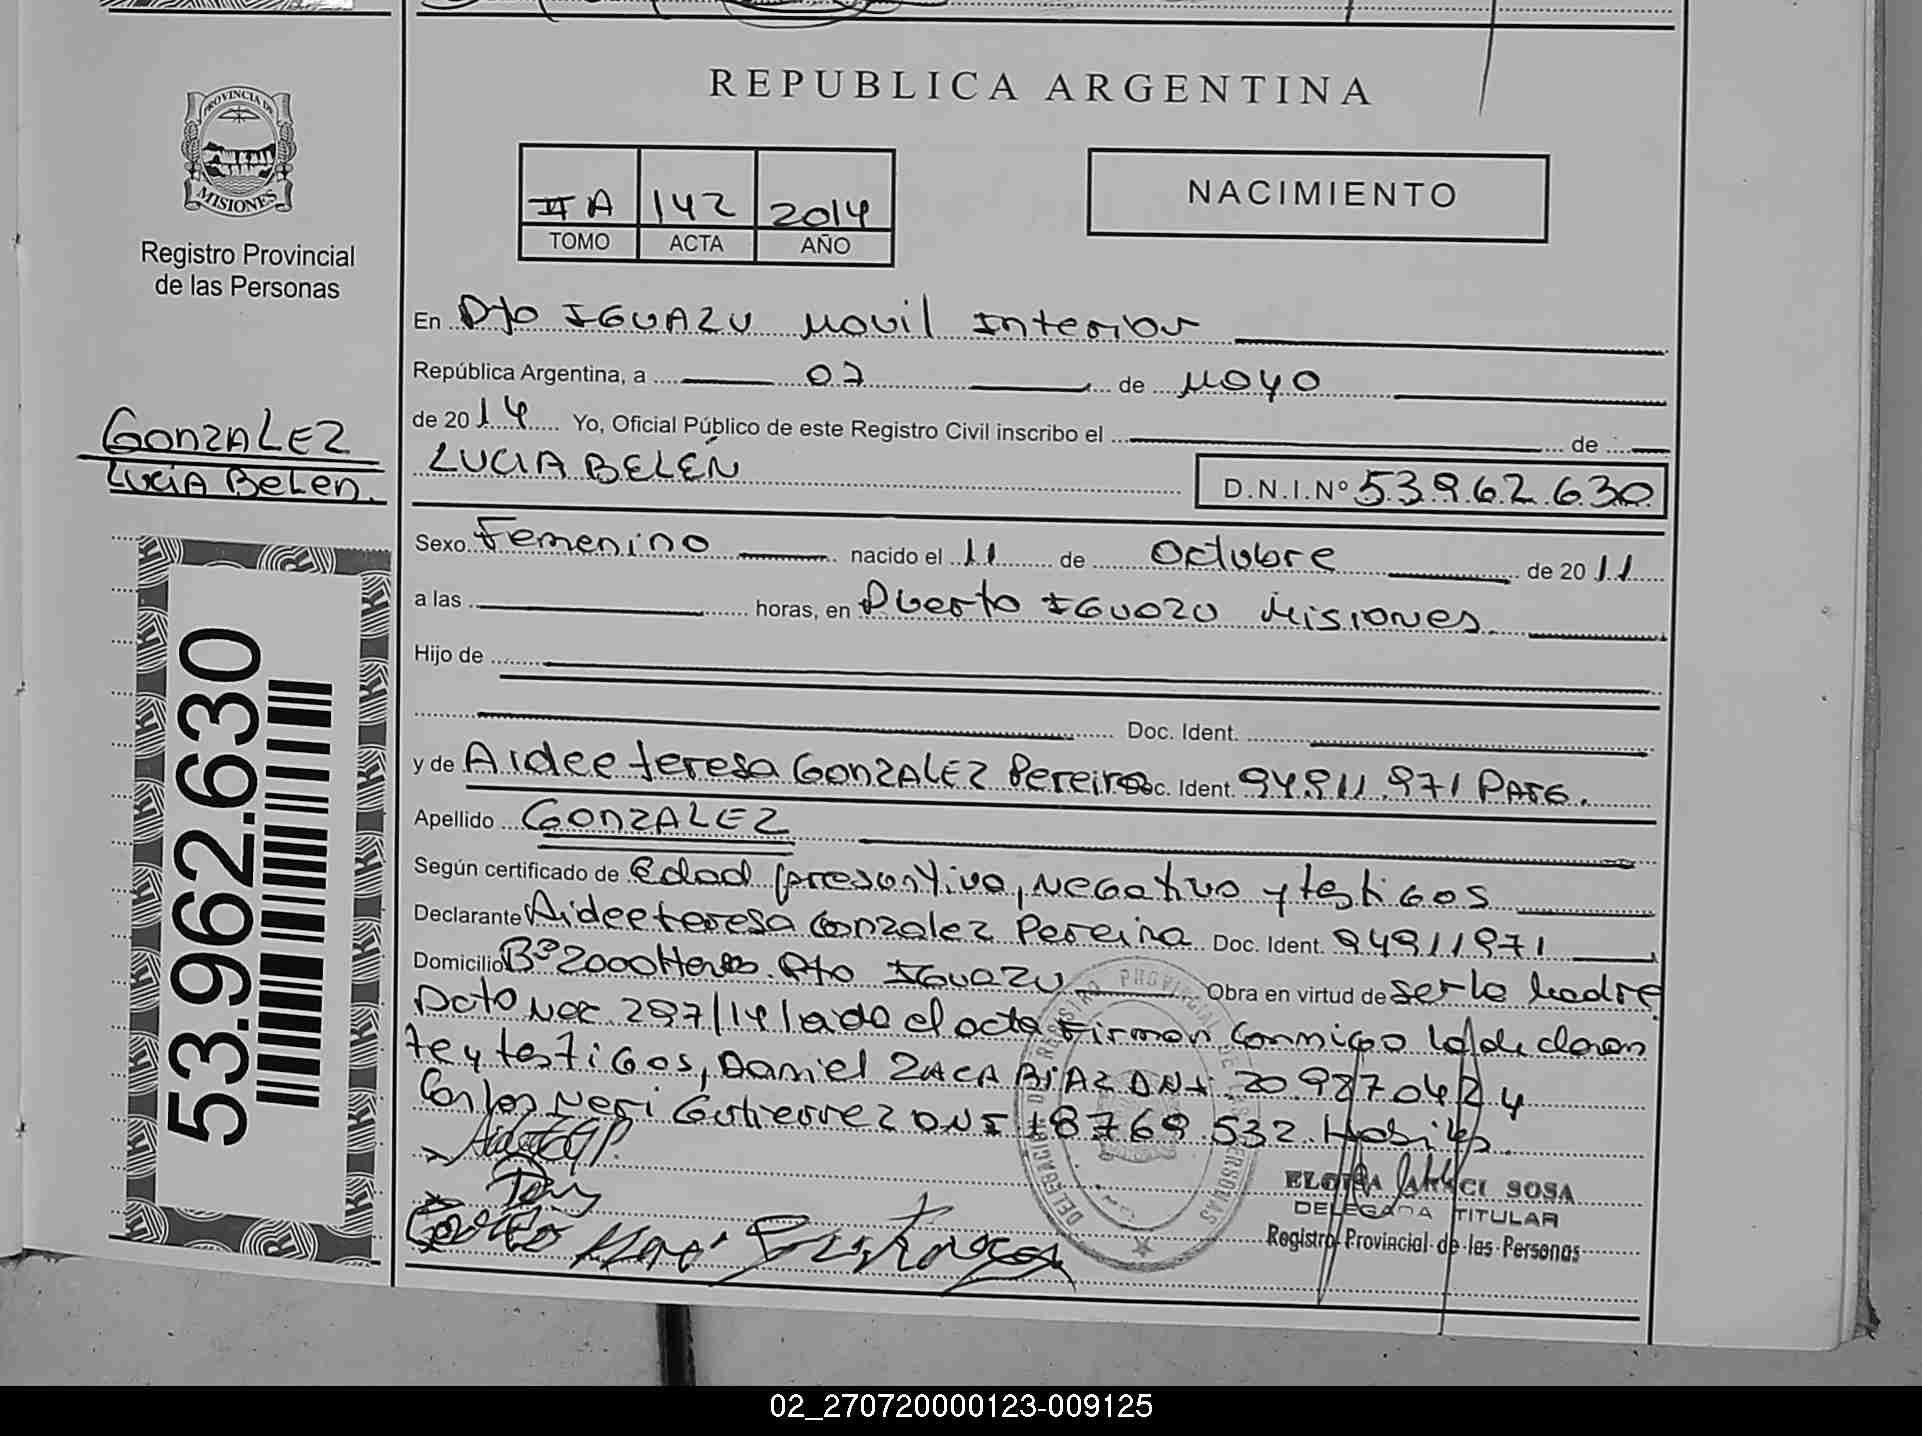 REPUBLICA ARGENTINA
PROVINCIA DE
MISIONES
Registro Provincial
de las Personas
II A 142 2014
TOMO ACTA AÑO
NACIMIENTO
En Pto IGUAZU Movil Interior
República Argentina, a 07 de Mayo
de 2014 Yo, Oficial Público de este Registro Civil inscribo el de
GONZALEZ
LUCIA BELEN.
LUCIA BELÉN
D.N.I.Nº 53.962.630
Sexo Femenino nacido el 11 de Octubre de 2011
a las horas, en Puerto IGUAZU Misiones
Hijo de
Doc. Ident.
y de Aidee teresa GONZALEZ Pereira Doc. Ident. 94911.971 PARG.
Apellido GONZALEZ
Según certificado de Edad presuntiva, Negativo y testigos
Declarante Aidee teresa Gonzalez Pereira Doc. Ident. 94911971
Domicilio Bº 2000 Hectareas Pto IGUAZU Obra en virtud de ser la Madre
Dcto Nac 297/14 leido el acta Firman Conmigo la declaran
te y testigos, Daniel ZACARIAZ DNI 20987042 4
Carlos Neri Gutierrez DNI 18769.532 Habiles.
DELEGACION DE REGISTRO PROVINCIAL DE LAS PERSONAS
SOSA
DELEGADA TITULAR
Registro Provincial de las Personas
53.962.630
02_270720000123-009125